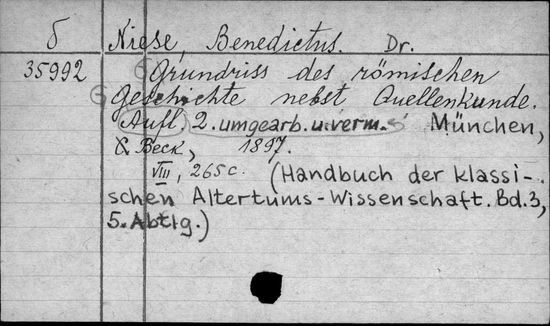 б Niese, Benedictus. Dr.
35992 Grundriss des römischen
Geschichte nebst Quellenkunde.
Aufl. 2. umgearb. u. verm. München,
Beck, 1897.
VIII, 265 c. (Handbuch der klassi-
schen Altertums-Wissenschaft. Bd. 3,
5. Abtlg.)